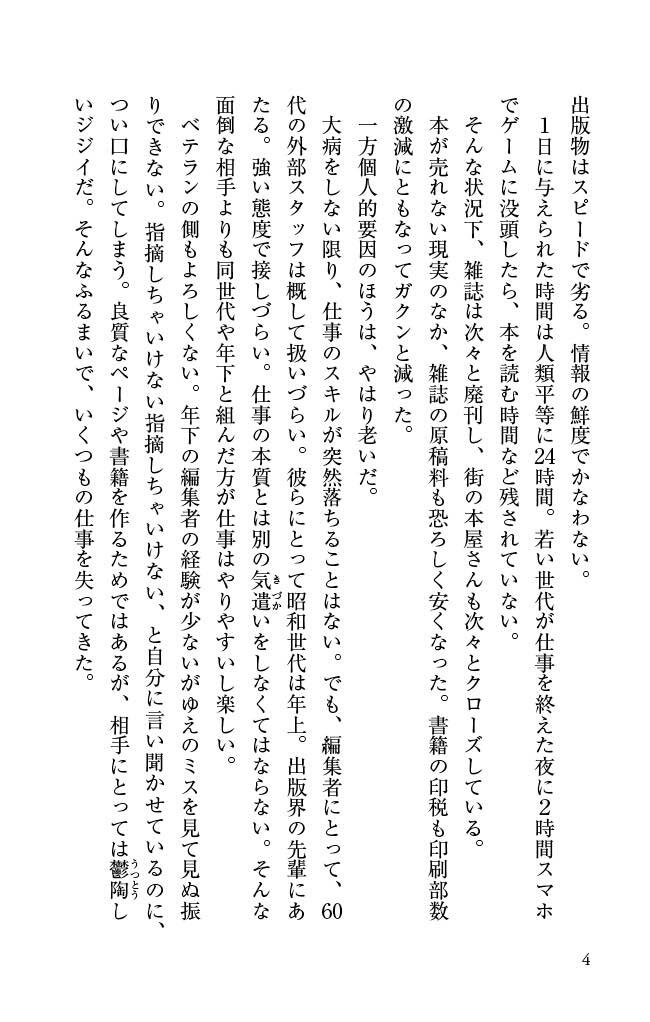 出版物はスピードで劣る。情報の鮮度でかなわない。
１日に与えられた時間は人類平等に24時間。若い世代が仕事を終えた夜に２時間スマホ
でゲームに没頭したら、本を読む時間など残されていない。
そんな状況下、雑誌は次々と廃刊し、街の本屋さんも次々とクローズしている。
本が売れない現実のなか、雑誌の原稿料も恐ろしく安くなった。書籍の印税も印刷部数
の激減にともなってガクンと減った。
一方個人的要因のほうは、やはり老いだ。
大病をしない限り、仕事のスキルが突然落ちることはない。でも、編集者にとって、60
代の外部スタッフは概して扱いづらい。彼らにとって昭和世代は年上。出版界の先輩にあ
たる。強い態度で接しづらい。仕事の本質とは別の気遣いをしなくてはならない。そんな
面倒な相手よりも同世代や年下と組んだ方が仕事はやりやすいし楽しい。
ベテランの側もよろしくない。年下の編集者の経験が少ないがゆえのミスを見て見ぬ振
りできない。指摘しちゃいけない指摘しちゃいけない、と自分に言い聞かせているのに、
つい口にしてしまう。良質なページや書籍を作るためではあるが、相手にとっては鬱陶し
いジジイだ。そんなふるまいで、いくつもの仕事を失ってきた。
4